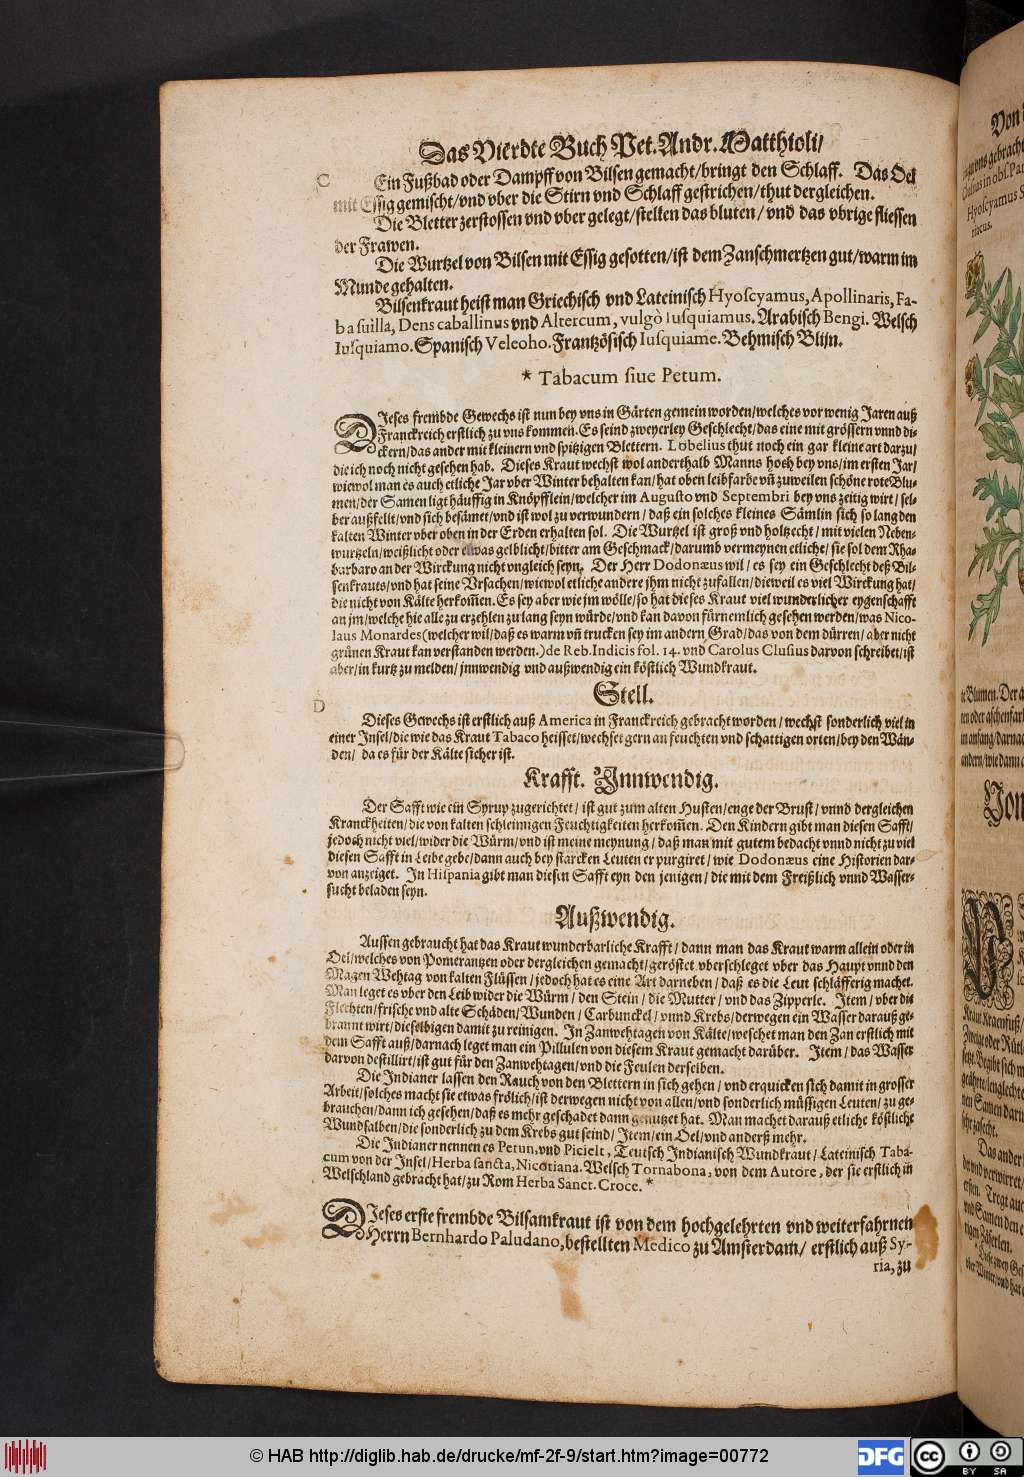 Das Vierdte Buch Pet. Andr. Matthioli/
C
Ein Fußbad oder Dampff von Bilsen gemacht/bringt den Schlaff. Das Oel
mit Essig gemischt/vnd vber die Stirn vnd Schlaff gestrichen/thut dergleichen.
Die Bletter zerstossen vnd vber gelegt/stelken das bluten/vnd das vbrige fliessen
der Frawen.
Die Wurtzel von Bilsen mit Essig gesotten/ist dem Zanschmertzen gut/warm im
Munde gehalten.
Bilsenkraut heist man Griechisch vnd Lateinisch Hyoscyamus, Apollinaris, Fa-
ba suilla, Dens caballinus vnd Altercum, vulgò Iusquiamus. Arabisch Bengi. Welsch
Iusquiamo. Spanisch Veleoho. Frantzösisch Iusquiame. Behmisch Blijn.
* Tabacum siue Petum.
DIeses frembde Gewechs ist nun bey vns in Gärten gemein worden/welches vor wenig Jaren auß
Franckreich erstlich zu vns kommen. Es seind zweyerley Geschlecht/das eine mit grössern vnnd di-
ckern/das ander mit kleinern vnd spitzigen Blettern. Lobelius thut noch ein gar kleine art darzu/
die ich noch nicht gesehen hab. Dieses Kraut wechst wol anderthalb Manns hoch bey vns/im ersten Jar/
wiewol man es auch etliche Jar vber Winter behalten kan/hat oben leibfarbe vñ zuweilen schöne rote Blu-
men/der Samen ligt häuffig in Knöpfflein/welcher im Augusto vnd Septembri bey vns zeitig wirt/sel-
ber außfellt/vnd sich besämet/vnd ist wol zu verwundern/daß ein solches kleines Sämlin sich so lang den
kalten Winter vber oben in der Erden erhalten sol. Die Wurtzel ist groß vnd holtzecht/mit vielen Neben-
wurtzeln/weißlicht oder etwas gelblicht/bitter am Geschmack/darumb vermeynen etliche/sie sol dem Rha-
barbaro an der Wirckung nicht vngleich seyn. Der Herr Dodonæus wil/es sey ein Geschlecht deß Bil-
senkrauts/vnd hat seine Vrsachen/wiewol etliche andere jhm nicht zufallen/dieweil es viel Wirckung hat/
die nicht von Kälte herkom̃en. Es sey aber wie jm wölle/so hat dieses Kraut viel wunderlicher eygenschafft
an jm/welche hie alle zu erzehlen zu lang seyn würde/vnd kan davon fürnemlich gesehen werden/was Nico-
laus Monardes (welcher wil/daß es warm vñ trucken sey im andern Grad/das von dem dürren/aber nicht
grünen Kraut kan verstanden werden.) de Reb. Indicis fol. 14. vnd Carolus Clusius darvon schreibet/ist
aber/in kurtz zu melden/innwendig vnd außwendig ein köstlich Wundkraut.
Stell.
D
Dieses Gewechs ist erstlich auß America in Franckreich gebracht worden/wechst sonderlich viel in
einer Insel/die wie das Kraut Tabaco heisset/wechset gern an feuchten vnd schattigen orten/bey den Wän-
den/da es für der Kälte sicher ist.
Krafft. Innwendig.
Der Safft wie ein Syrup zugerichtet/ist gut zum alten Husten/enge der Brust/vnnd dergleichen
Kranckheiten/die von kalten schleimigen Feuchtigkeiten herkom̃en. Den Kindern gibt man diesen Safft/
jedoch nicht viel/wider die Würm/vnd ist meine meynung/daß man mit gutem bedacht vnnd nicht zu viel
diesen Safft in Leibe gebe/dann auch bey starcken Leuten er purgiret/wie Dodonæus eine Historien dar-
von anzeiget. In Hispania gibt man diesen Safft eyn den jenigen/die mit dem Freißlich vnnd Wasser-
sucht beladen seyn.
Außwendig.
Aussen gebraucht hat das Kraut wunderbarliche Krafft/dann man das Kraut warm allein oder in
Oel/welches von Pomerantzen oder dergleichen gemacht/geröstet vberschleget vber das Haupt vnnd den
Magen Wehtag von kalten Flüssen/jedoch hat es eine Art darneben/daß es die Leut schläfferig machet.
Man leget es vber den Leib wider die Würm/den Stein/die Mutter/vnd das Zipperle. Item/vber die
Flechten/frische vnd alte Schäden/Wunden/Carbunckel/vnnd Krebs/derwegen ein Wasser darauß ge-
brannt wirt/dieselbigen damit zu reinigen. In Zanwehtagen von Kälte/weschet man den Zan erstlich mit
dem Safft auß/darnach leget man ein Pillulen von diesem Kraut gemacht darüber. Item/das Wasser
darvon destillirt/ist gut für den Zanwehtagen/vnd die Feulen derselben.
Die Indianer lassen den Rauch von den Blettern in sich gehen/vnd erquicken sich damit in grosser
Arbeit/solches macht sie etwas frölich/ist derwegen nicht von allen/vnd sonderlich müssigen Leuten/zu ge-
brauchen/dann ich gesehen/daß es mehr geschadet dann genutzet hat. Man machet darauß etliche köstliche
Wundsalben/die sonderlich zu dem Krebs gut seind/Item/ein Oel/vnd anderß mehr.
Die Indianer nennen es Petun, vnd Picielt, Teutsch Indianisch Wundkraut/Lateinisch Taba-
cum von der Insel/Herba sancta, Nicotiana. Welsch Tornabona, von dem Autore, der sie erstlich in
Welschland gebracht hat/zu Rom Herba Sanct. Croce. *
DIeses erste frembde Bilsamkraut ist von dem hochgelehrten vnd weiterfahrnen
Herrn Bernhardo Paludano, bestellten Medico zu Amsterdam/erstlich auß Sy-
ria, zu
© HAB http://diglib.hab.de/drucke/mf-2f-9/start.htm?image=00772
DFG
cc
BY SA